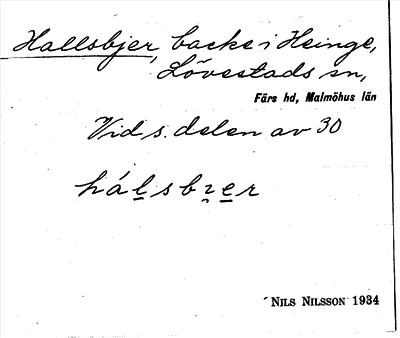 Hallsbjer, backe i Heinge,
Lövestads sn,
Färs hd, Malmöhus län
Vid s. delen av 30
hál̲sbɿ̯e̲r
NILS NILSSON 1934